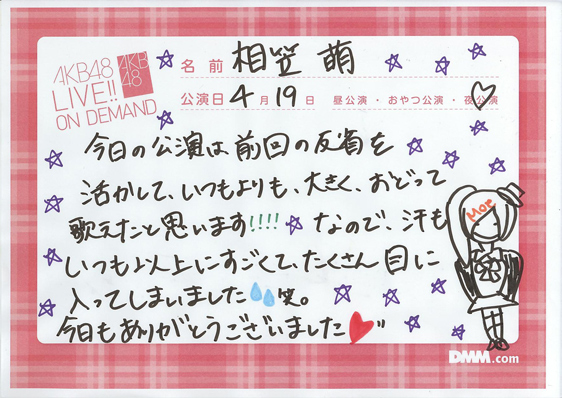 AKB48
LIVE!!
ON DEMAND
AKB
48
名前 相笠 萌
公演日 4月19日 昼公演・おやつ公演・夜公演
今日の公演は前回の反省を
活かして、いつもよりも、大きく、おどって
歌えたと思います!!!! なので、汗も
いつも以上にすごくて、たくさん目に
入ってしまいました 笑。
今日もありがとうございました
Moe
DMM.com